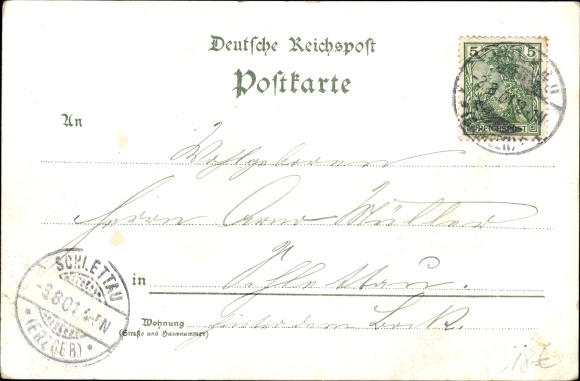 Deutsche Reichspost
Postkarte
5 5
REICHSPOST
An
Wohlgeboren
Herrn Arno Müller
in Schlettau.
SCHLETTAU
-3.8.01. 4-5N
*(ERZGEB)*
Wohnung
(Straße und Hausnummer)
18€